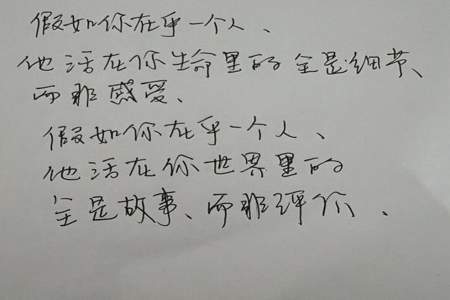 假如你在乎一个人、
他活在你生命里的全是细节、
而非感受、
假如你在乎一个人、
他活在你世界里的
全是故事、而非评价、